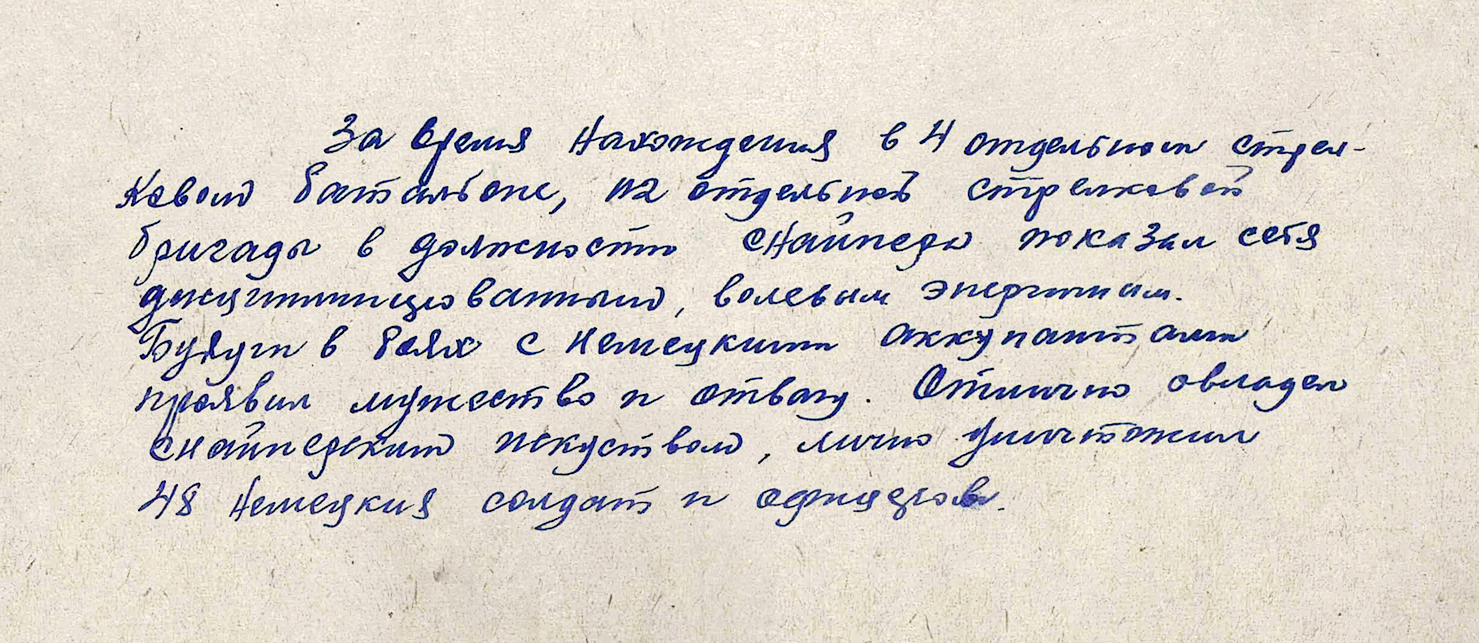 За время нахождения в 4 отдельном стрел-
ковом батальоне, 112 отдельной стрелковой
бригады в должности снайпера показал себя
дисциплинированным, волевым энергичным.
Будучи в боях с немецкими аккупантами
проявил мужество и отвагу. Отлично овладел
снайперским искуством, лично уничтожил
48 немецких солдат и офицеров.